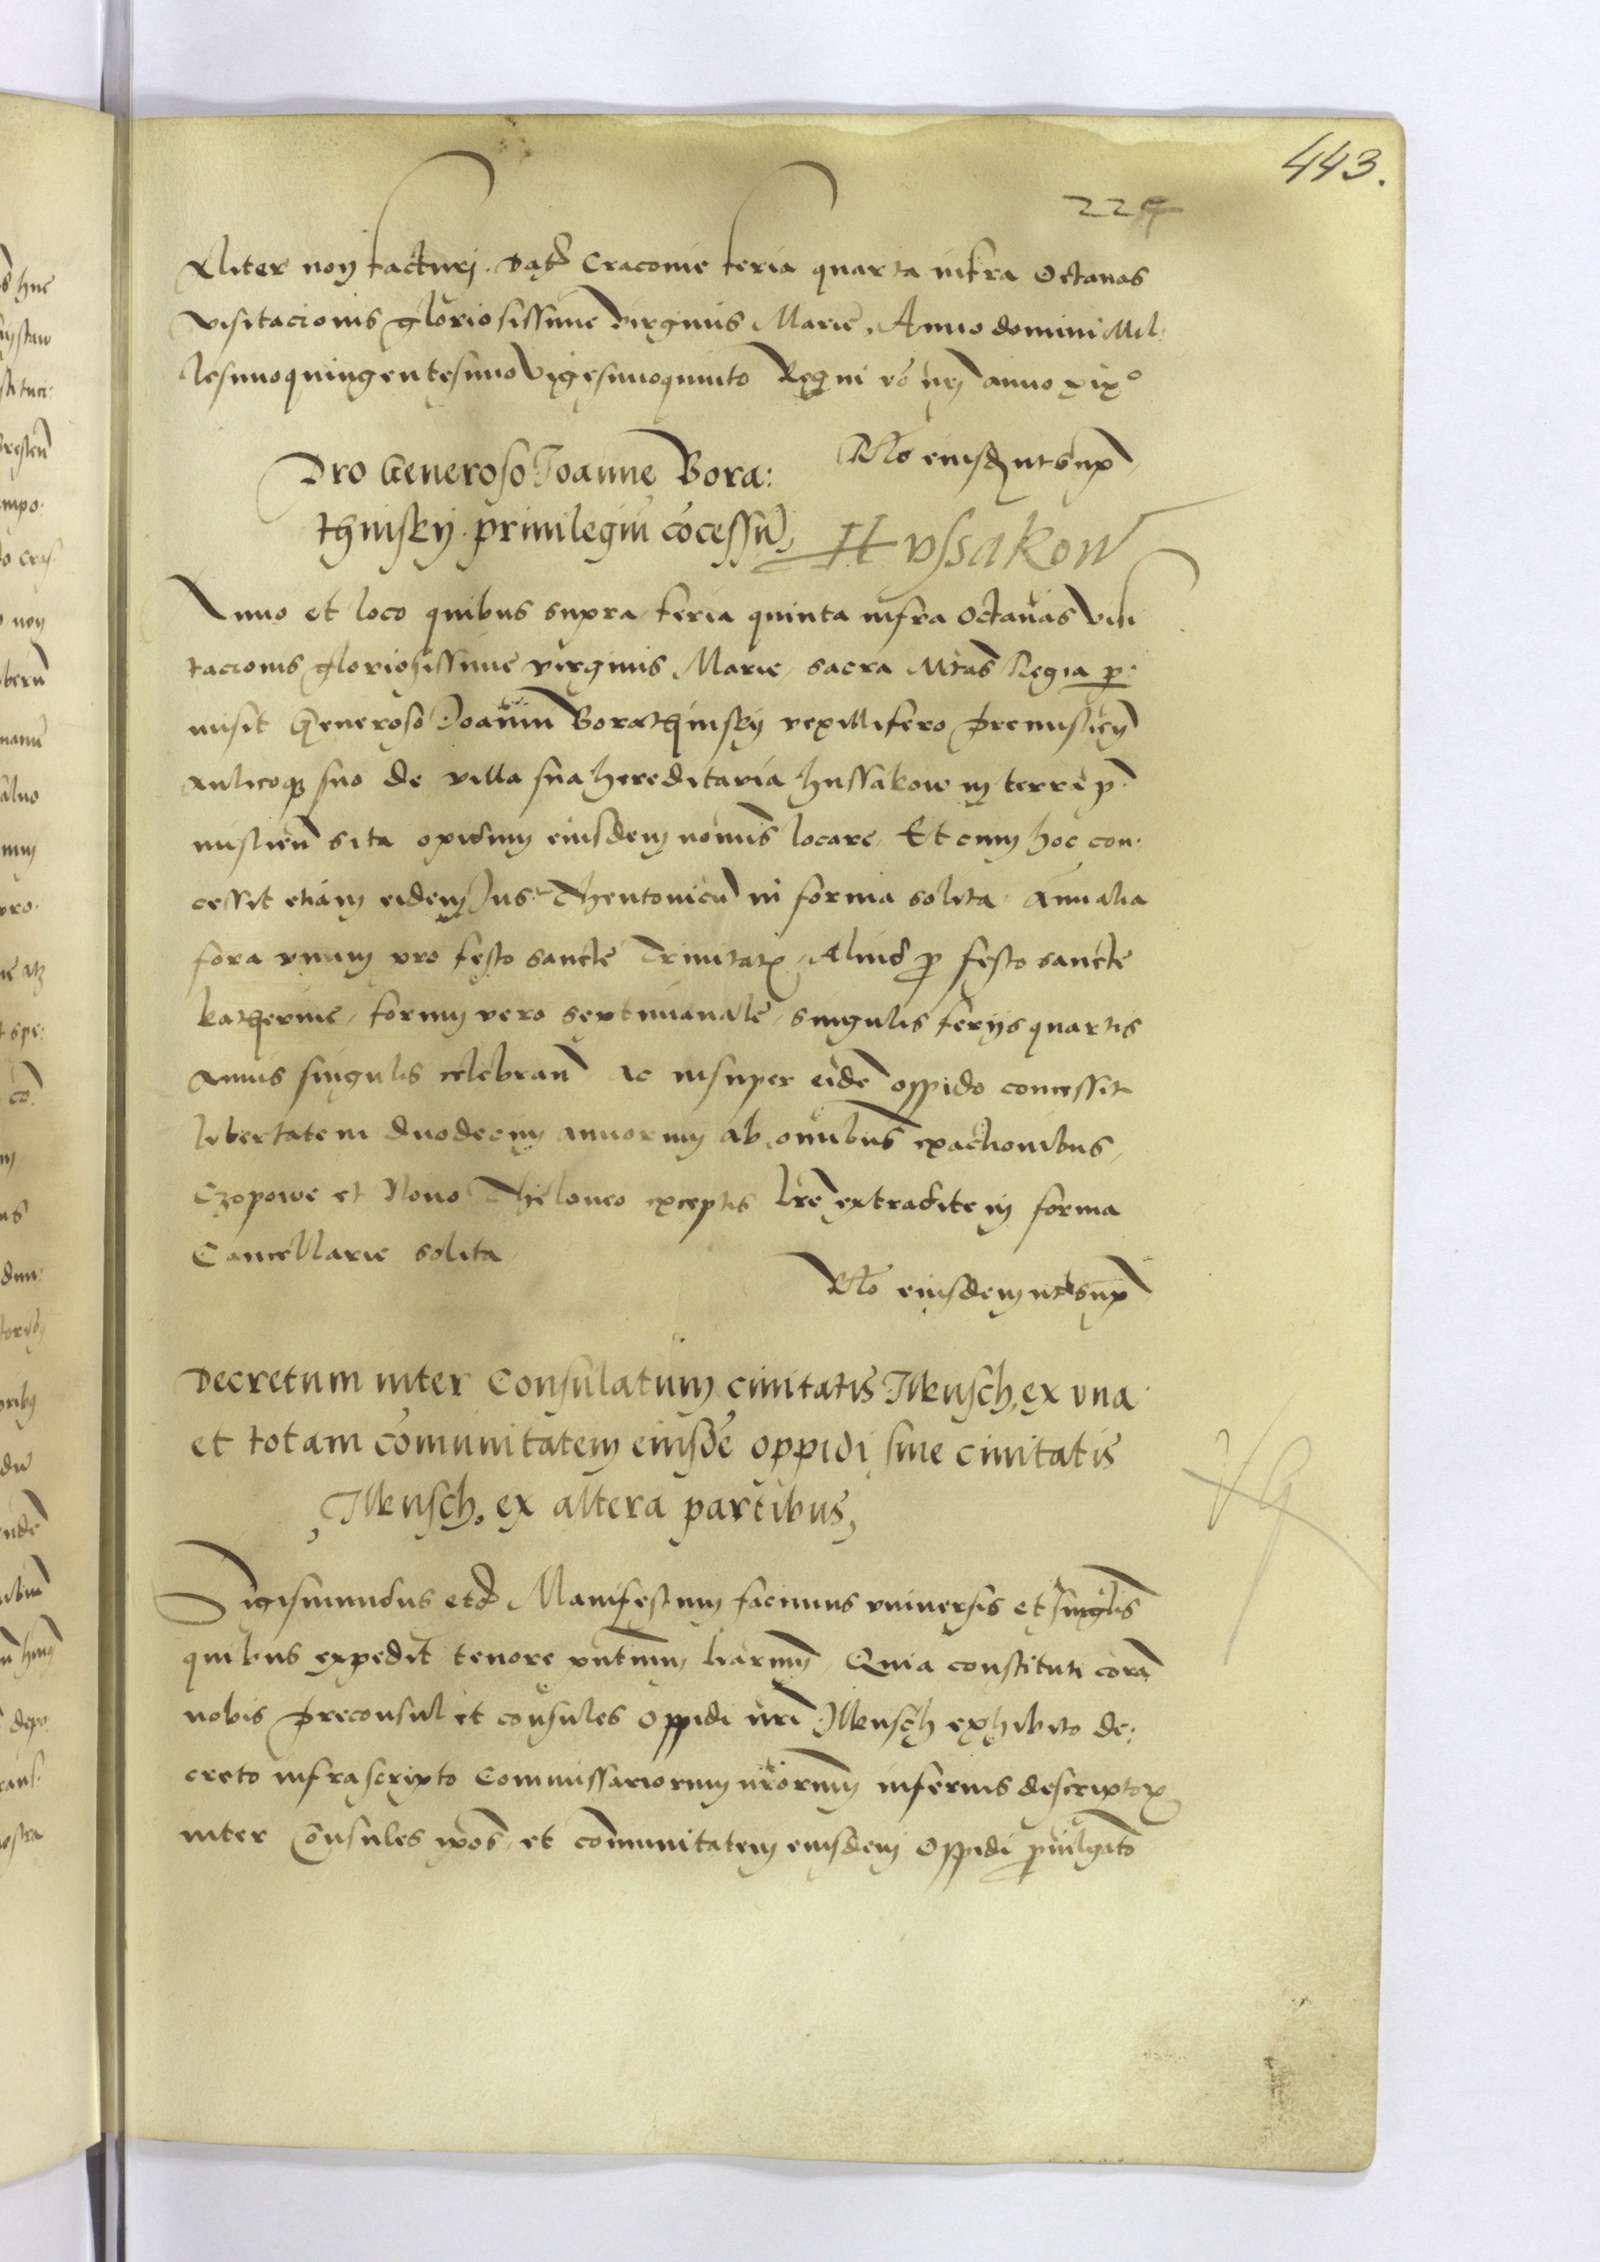 443.
229
Aliter non facturi. Dat Cracovie feria quarta infra Octavas
visitacionis gloriosissime virginis Marie, Anno domini Mil-
lesimoquingentesimo vigesimoquinto Regni vo nri anno xix°
Rlo eiusdz ut supra
Pro Generoso Joanne Bora:
thinsky privilegiu cocessu,
Hussakow
Anno et loco quibus supra feria quinta infra Octavas visi
tacionis gloriosissime virginis Marie, sacra Mtas Regia p:
misit Generoso Joanni Borathinsky vexillifero premislien
aulicoqz suo de villa sua hereditaria hussakow in terra p
mislien sita opidum eiusdem nominis locare, Et cum hoc con:
cessit etiam eidem Jus Theutonicu in forma solita, Annalia
fora unum pro festo sancte Trinitatis, Aliud p festo sancte
katherine, forum vero septimanale, singulis ferijs quartis
annis singulis celebran ac insuper eide oppido concessit
libertatem duodecim annorum ab omnibus exactionibus,
Czopowe et Novo Theloneo exceptis lre extradite in forma
Cancellarie solita,
Rlo eiusdem ut supra
Decretum inter Consulatum civitatis Ilkusch, ex una
et totam comunitatem eiusde oppidi sive civitatis
Ilkusch, ex altera partibus,
Sigismundus etc Manifestum facimus universis et singulis
quibus expedit tenore pntium harum, Quia constituti cora
nobis preconsul et consules oppidi nri Ilkusch exhibito de:
creto infrascripto Commissariorum nrorum inferius descriptor
inter Consules ipos, et comunitatem eiusdem oppidi pmlgato